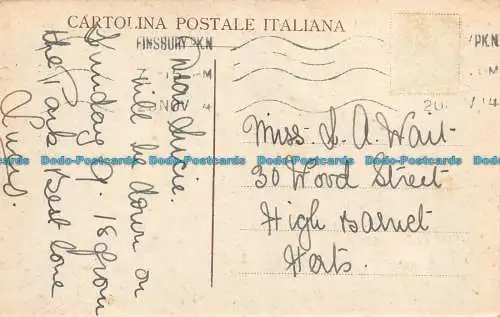 CARTOLINA POSTALE ITALIANA
FINSBURY PK.N
NOV 4
/PK.N
V 14
Dear Lucie.
Will be down on
Sunday
the Park Best love
Miss. L. A. Wait
30 Wood Street
High Barnet
Herts.
Dodo-Postcards Dodo-Postcards Dodo-Postcards Dodo-Postcards